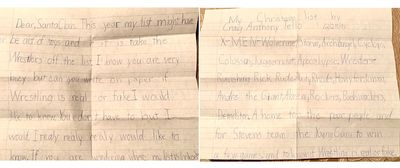 Dear, Santa Claus This year my list might have
be alot of toys and is take the
Wrestlers off the list I know you are very
busy but can you write on paper if
Wrestling is real or fake I would
like to know You don't have to but I
would I realy realy realy would like to
know. If you are wondering
My Christmas list by
Craig Anthony Tello
X-MEN=Wolverine, Storm, Archangel, Cyclops,
Colossus, Juggernaut, Apocalypse, Wrestlers=
Ravishing Rick Rude,
Andre the Giant, Rockers, Bushwackers,
Demolition. A home to the poor people and
for Stevens team the Jayne Gems to win
a few games and to know if Wrestling is real or fake.